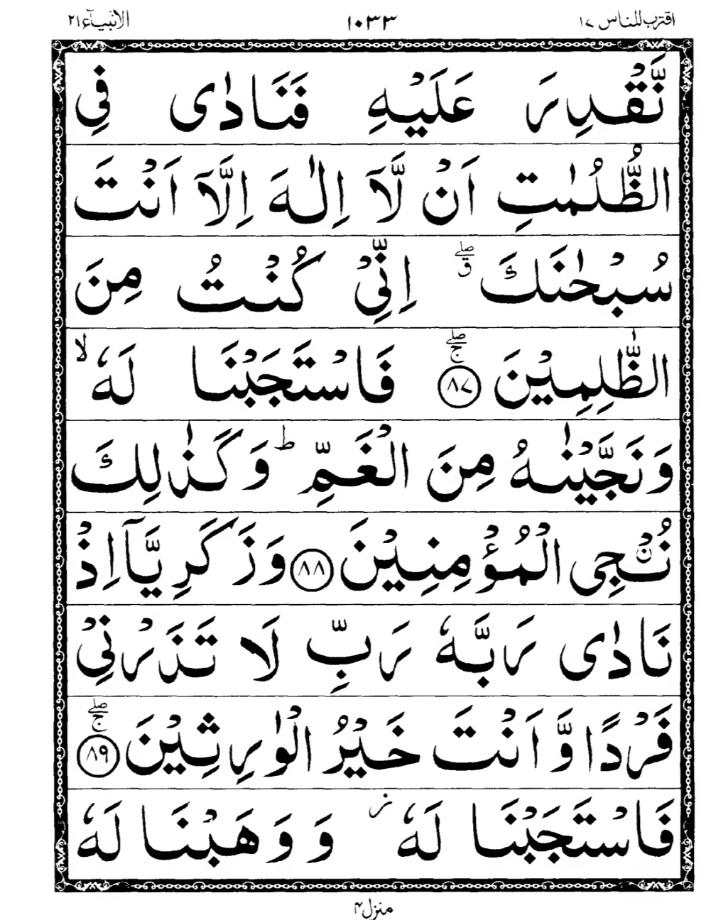 اقترب للناس ١٧
١٠٣٣
الانبیآء ٢١
نَّقْدِرَ عَلَيْهِ فَنَادٰى فِي
الظُّلُمٰتِ اَنْ لَّاۤ اِلٰهَ اِلَّاۤ اَنْتَ
سُبْحٰنَكَ ۖق اِنِّيْ كُنْتُ مِنَ
الظّٰلِمِيْنَ ۖۚ ﴿٨٧﴾ فَاسْتَجَبْنَا لَهٗ ۙ
وَنَجَّيْنٰهُ مِنَ الْغَمِّ ؕ وَكَذٰلِكَ
نُـۨجِي الْمُؤْمِنِيْنَ ﴿٨٨﴾ وَزَكَرِيَّاۤ اِذْ
نَادٰى رَبَّهٗ رَبِّ لَا تَذَرْنِيْ
فَرْدًا وَّاَنْتَ خَيْرُ الْوٰرِثِيْنَ ۖۚ ﴿٨٩﴾
فَاسْتَجَبْنَا لَهٗ ز وَوَهَبْنَا لَهٗ
منزل ۴